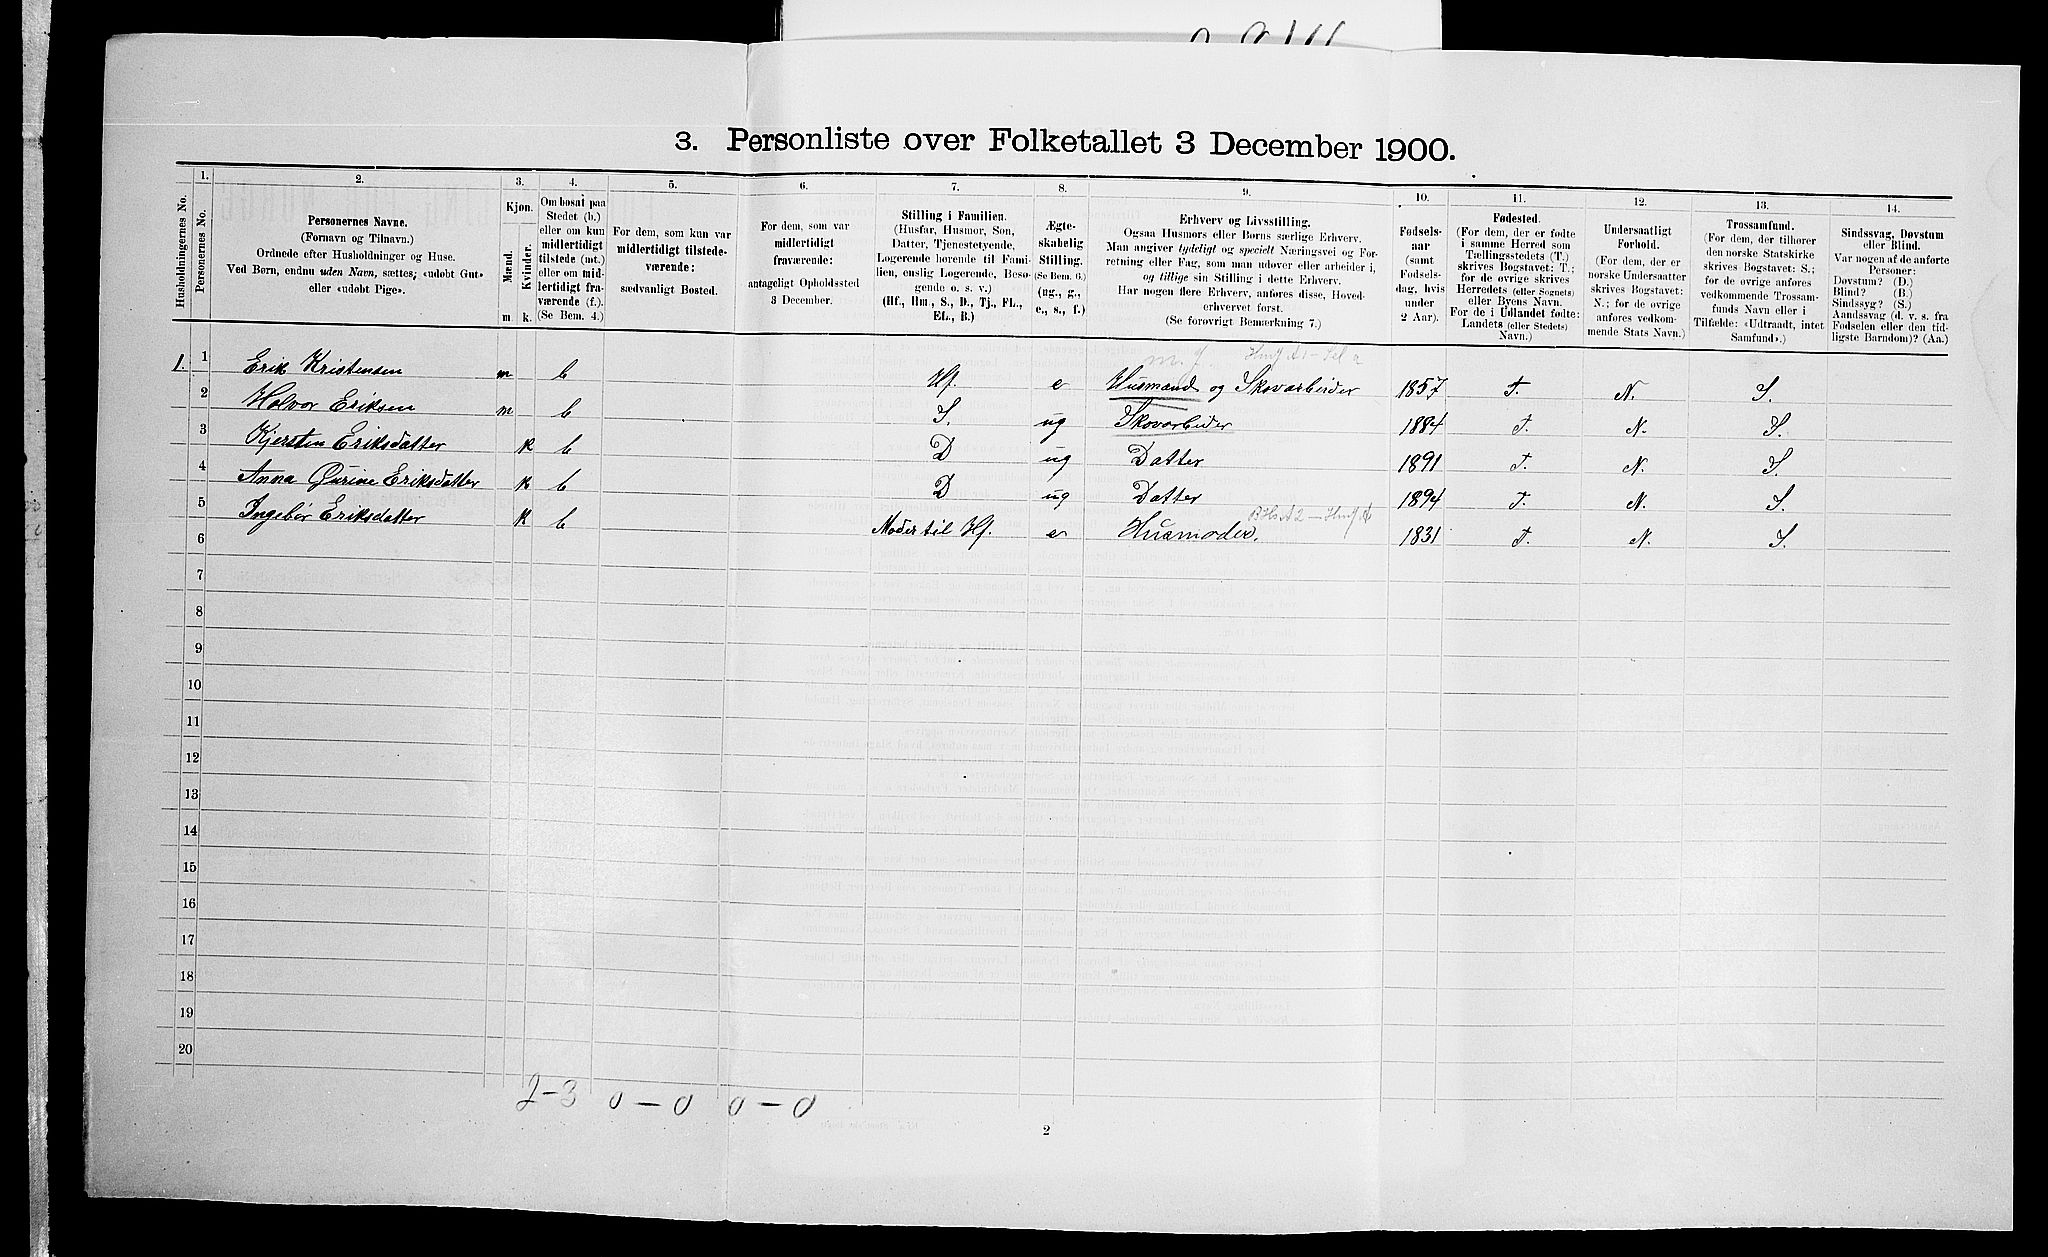 3. Personliste over Folketallet 3 December 1900.
1. 2. 3. 4. 5. 6. 7. 8. 9. 10. 11. 12. 13. 14.
Husholdningernes No.
Personernes No.
Personernes Navne.
(Fornavn og Tilnavn.)
Ordnede efter Husholdninger og Huse.
Ved Børn, endnu uden Navn, sættes: «udøbt Gut»
eller «udøbt Pige».
Kjøn.
Mænd.
Kvinder.
m. k.
Om bosat paa
Stedet (b.)
eller om kun
midlertidigt
tilstede (mt.)
eller om mid-
lertidigt fra-
værende (f.).
(Se Bem. 4.)
For dem, som kun var
midlertidigt tilstede-
værende:
sædvanligt Bosted.
For dem, som var
midlertidigt
fraværende:
antageligt Opholdssted
3 December.
Stilling i Familien.
(Husfar, Husmor, Søn,
Datter, Tjenestetyende,
Logerende hørende til Fami-
lien, enslig Logerende, Besø-
gende o. s. v.)
(Hf., Hm., S., D., Tj., FL.,
EL., B.)
Ægte-
skabelig
Stilling.
(Se Bem. 6.)
(ug., g.,
e., s., f.)
Erhverv og Livsstilling.
Ogsaa Husmors eller Børns særlige Erhverv.
Man angiver tydeligt og specielt Næringsvei og For-
retning eller Fag, som man udøver eller arbeider i,
og tillige sin Stilling i dette Erhverv.
Har nogen flere Erhverv, anføres disse, Hoved-
erhvervet først.
(Se forøvrigt Bemærkning 7.)
Fødsels-
aar
(samt
Fødsels-
dag, hvis
under
2 Aar).
Fødested.
(For dem, der er fødte
i samme Herred som
Tællingsstedets (T.)
skrives Bogstavet: T.;
for de øvrige skrives
Herredets (eller Sognets)
eller Byens Navn.
For de i Udlandet fødte:
Landets (eller Stedets)
Navn.)
Undersaatligt
Forhold.
(For dem, der er
norske Undersaatter
skrives Bogstavet:
N.; for de øvrige
anføres vedkom-
mende Stats Navn.)
Trossamfund.
(For dem, der tilhører
den norske Statskirke
skrives Bogstavet: S.;
for de øvrige anføres
vedkommende Trossam-
funds Navn eller i
Tilfælde: «Udtraadt, intet
Samfund».)
Sindssvag, Døvstum
eller Blind.
Var nogen af de anførte
Personer:
Døvstum? (D.)
Blind? (B.)
Sindssyg? (S.)
Aandssvag (d. v. s. fra
Fødselen eller den tid-
ligste Barndom)? (Aa.)
1. 1 Erik Kristensen m b Hf. e Husmand og Skovarbeider 1857 T. N. S.
2 Halvor Eriksen m b S. ug Skovarbeider 1884 T. N. S.
3 Kjersten Eriksdatter k b D ug Datter 1891 T. N. S.
4 Anna Gurine Eriksdatter k b D ug Datter 1894 T. N. S.
5 Ingebør Eriksdatter k b Moder til Hf. e Husmoder. 1831 T. N. S.
6
7
8
9
10
11
12
13
14
15
16
17
18
19
20
2-3 0-0 0-0
2